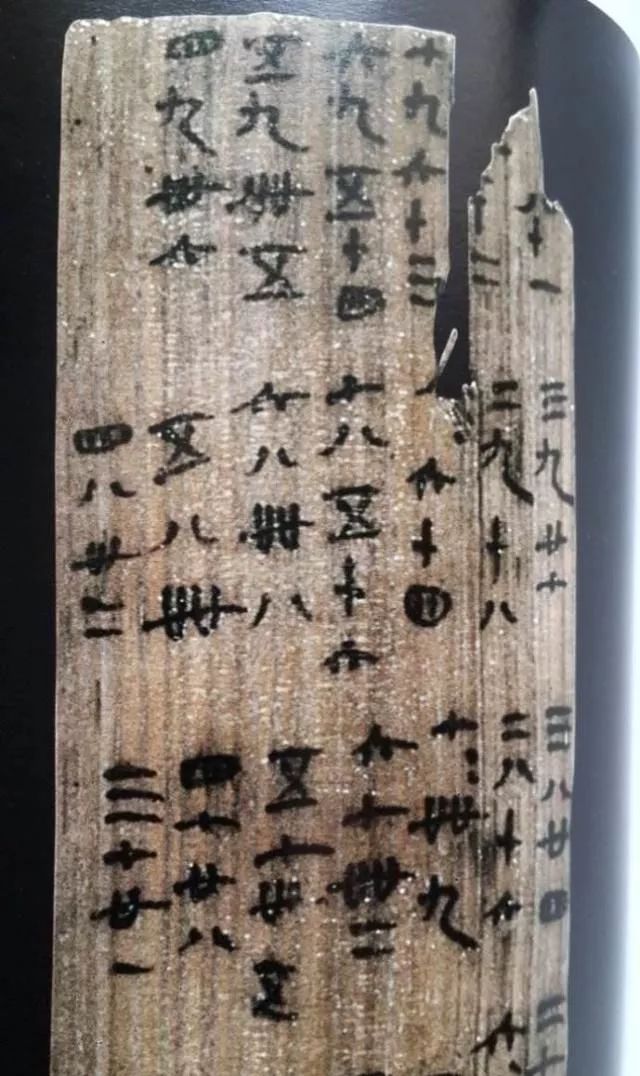 八十一
七二
七九六十三
六九五十四
五九卌五
四九卅六
三九廿七
二九十八
六十四
七八五十六
六八卌八
五八卌
四八卅二
三八廿四
二八十六
七七卌九
六七卌二
五七卅五
四七廿八
三七廿一
二七
六